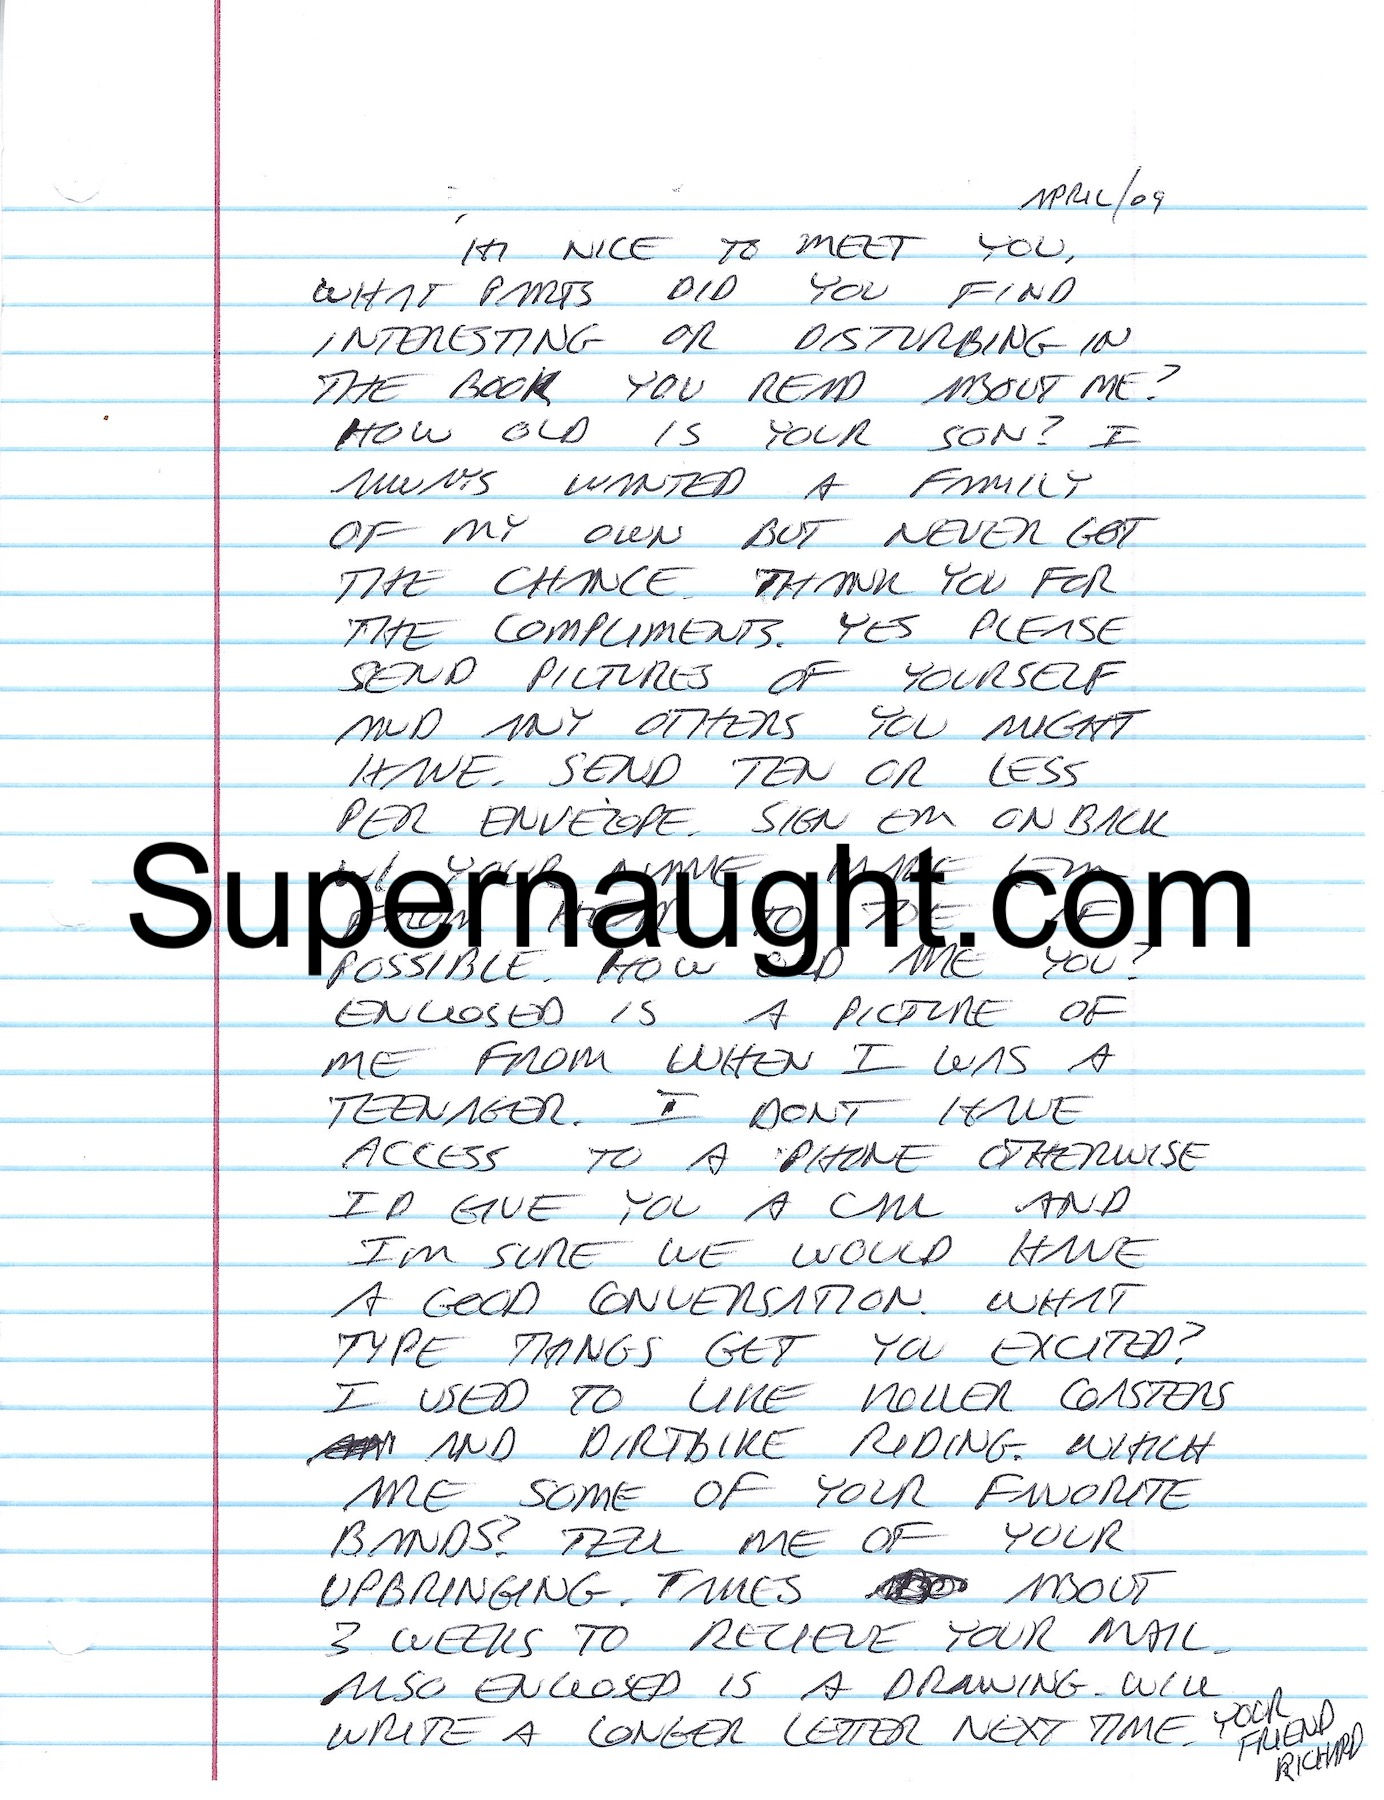 APRIL/09
HI NICE TO MEET YOU,
WHAT PARTS DID YOU FIND
INTERESTING OR DISTURBING IN
THE BOOK YOU READ ABOUT ME?
HOW OLD IS YOUR SON? I
ALWAYS WANTED A FAMILY
OF MY OWN BUT NEVER GOT
THE CHANCE. THANK YOU FOR
THE COMPLIMENTS. YES PLEASE
SEND PICTURES OF YOURSELF
AND ANY OTHERS YOU MIGHT
HAVE. SEND TEN OR LESS
PER ENVELOPE. SIGN EM ON BACK
W/ YOUR NAME. MAKE EM
FROM HEAD TO TOE IF
Supernaught.com
POSSIBLE. HOW OLD ARE YOU?
ENCLOSED IS A PICTURE OF
ME FROM WHEN I WAS A
TEENAGER. I DONT HAVE
ACCESS TO A PHONE OTHERWISE
ID GIVE YOU A CALL AND
IM SURE WE WOULD HAVE
A GOOD CONVERSATION. WHAT
TYPE THINGS GET YOU EXCITED?
I USED TO LIKE ROLLER COASTERS
AND DIRTBIKE RIDING. WHICH
ARE SOME OF YOUR FAVORITE
BANDS? TELL ME OF YOUR
UPBRINGING. TAKES ABOUT
3 WEEKS TO RECIEVE YOUR MAIL.
ALSO ENCLOSED IS A DRAWING. WILL
WRITE A LONGER LETTER NEXT TIME. YOUR
FRIEND
RICHARD